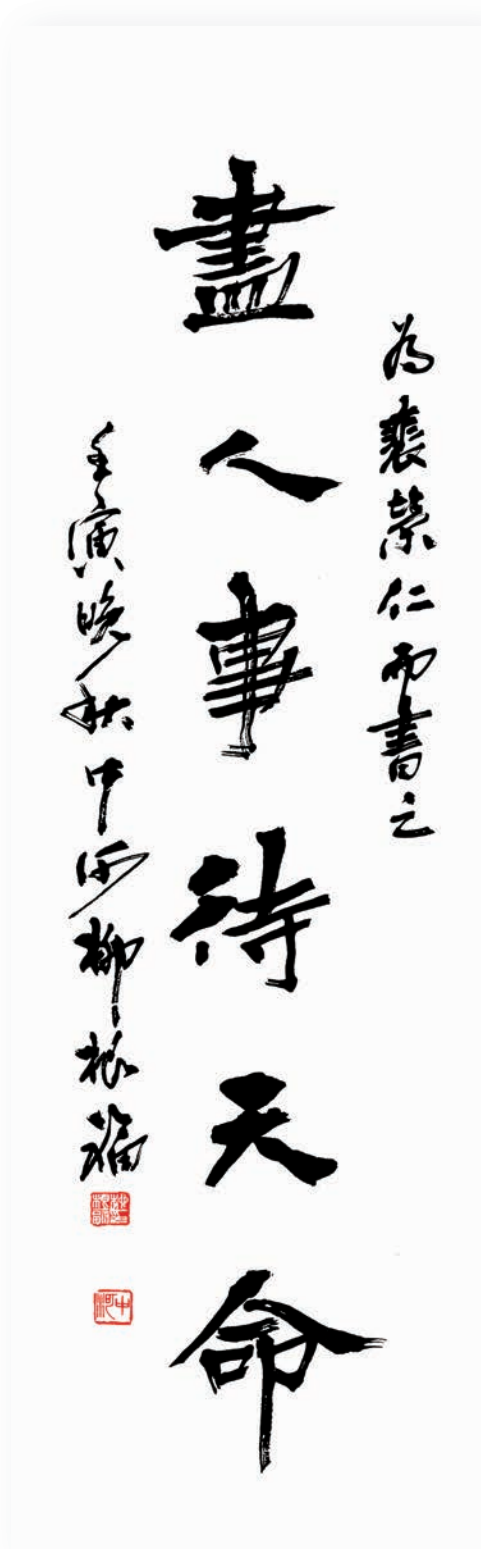 為裵榮仁而書之
盡人事待天命
壬寅晚秋中河柳根福
中河